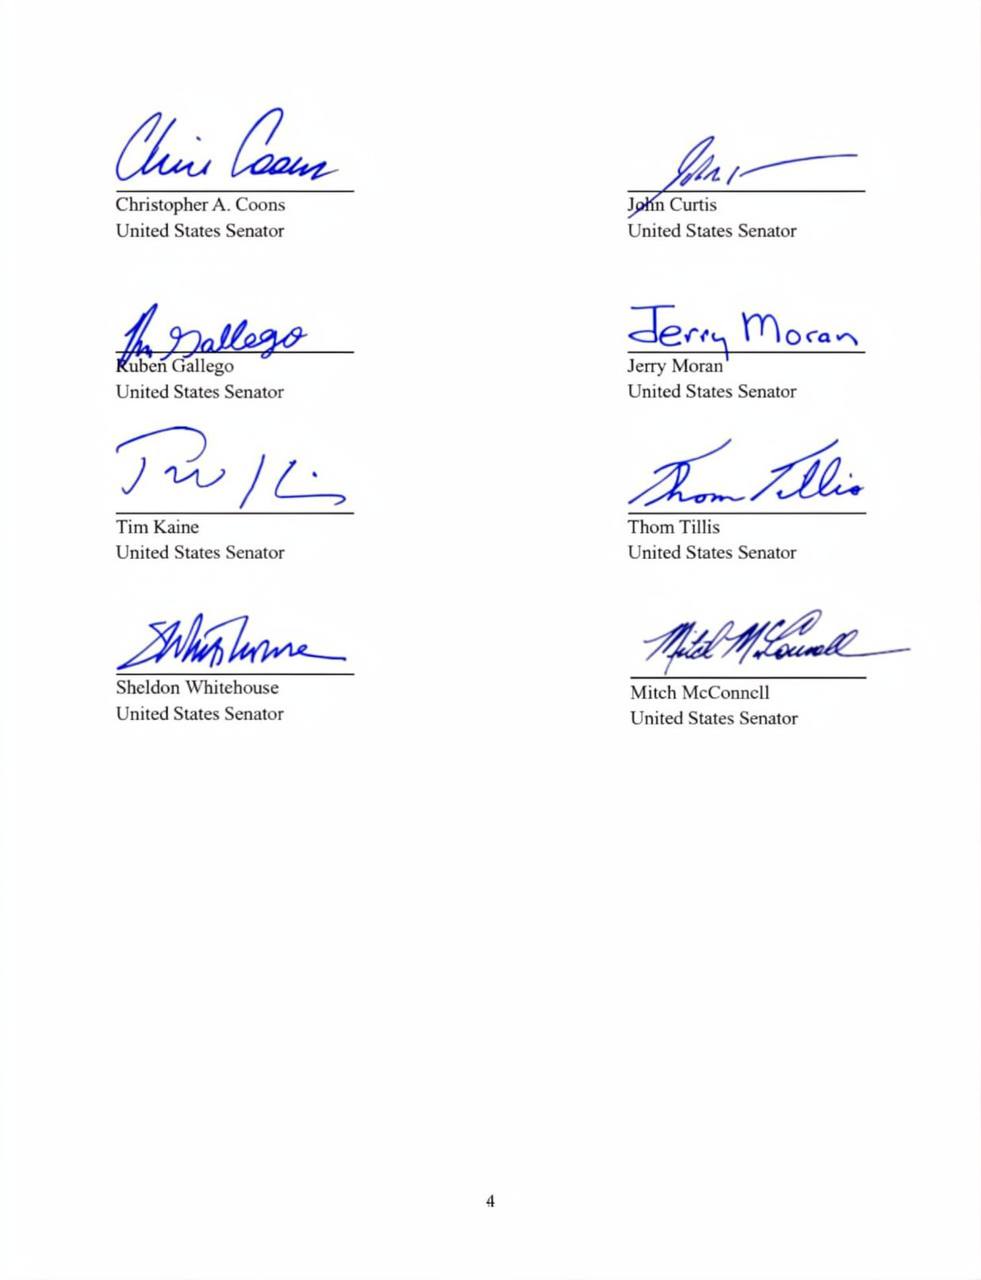 Chris Coons
Christopher A. Coons
United States Senator
John
John Curtis
United States Senator
Gallego
Ruben Gallego
United States Senator
Jerry Moran
Jerry Moran
United States Senator
Tim Kaine
United States Senator
Thom Tillis
Thom Tillis
United States Senator
SWhitehouse
Sheldon Whitehouse
United States Senator
Mitch McConnell
Mitch McConnell
United States Senator
4